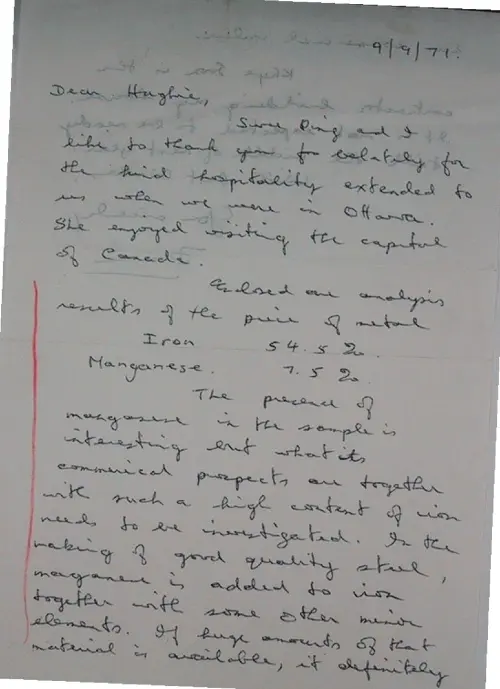 9/9/71.
Dear Hughie,
Siew Ping and I
like to thank you for belately for
the kind hospitality extended to
us when we were in Ottawa.
She enjoyed visiting the capital
of Canada.
Enclosed are analysis
results of the piece of metal
Iron 54.5 %.
Manganese. 7.5 %.
The presence of
manganese in the sample is
interesting but what its
commerical prospects are together
with such a high content of iron
needs to be investigated. In the
making of good quality steel,
manganese is added to iron
together with some other minor
elements. If huge amounts of that
material is available, it definitely